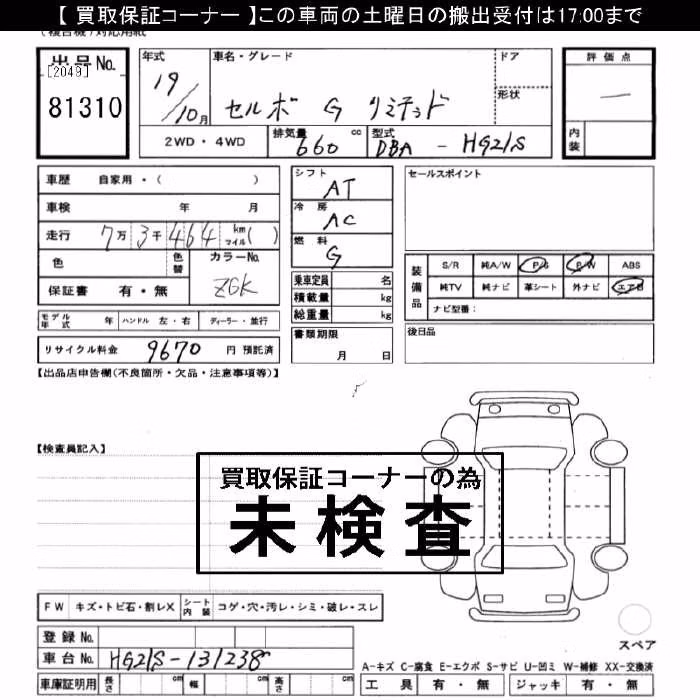 【 買取保証コーナー 】この車両の土曜日の搬出受付は17:00まで
出品No.
[2049]
81310
年式
19/10月
車名・グレード
セルボ G リミテッド
ドア
形状
評価点
—
内装
2WD・4WD
排気量 660 cc
型式 DBA - HG21S
車歴 自家用・( )
車検 年 月
走行 7万 3千 464 km マイル( )
色
色替
カラーNo.
ZGK
保証書 有・無
シフト
AT
冷房
AC
燃料
G
乗車定員 名
積載量 kg
総重量 kg
書類期限
月 日
セールスポイント
装備品
S/R 純A/W P/S P/W ABS
純TV 純ナビ 革シート 外ナビ エアB
ナビ型番:
後日品
モデル年式 年 ハンドル 左・右 ディーラー・並行
リサイクル料金 9670 円 預託済
【出品店申告欄(不良箇所・欠品・注意事項等)】
【検査員記入】
買取保証コーナーの為
未検査
FW キズ・トビ石・割レX シート内装 コゲ・穴・汚レ・シミ・破レ・スレ
登録No.
車台No. HG21S-131238
車庫証明用 長さ cm 幅 cm 高さ cm
スペア
A-キズ C-腐食 E-エクボ S-サビ U-凹ミ W-補修 XX-交換済
工具 有・無 ジャッキ 有・無